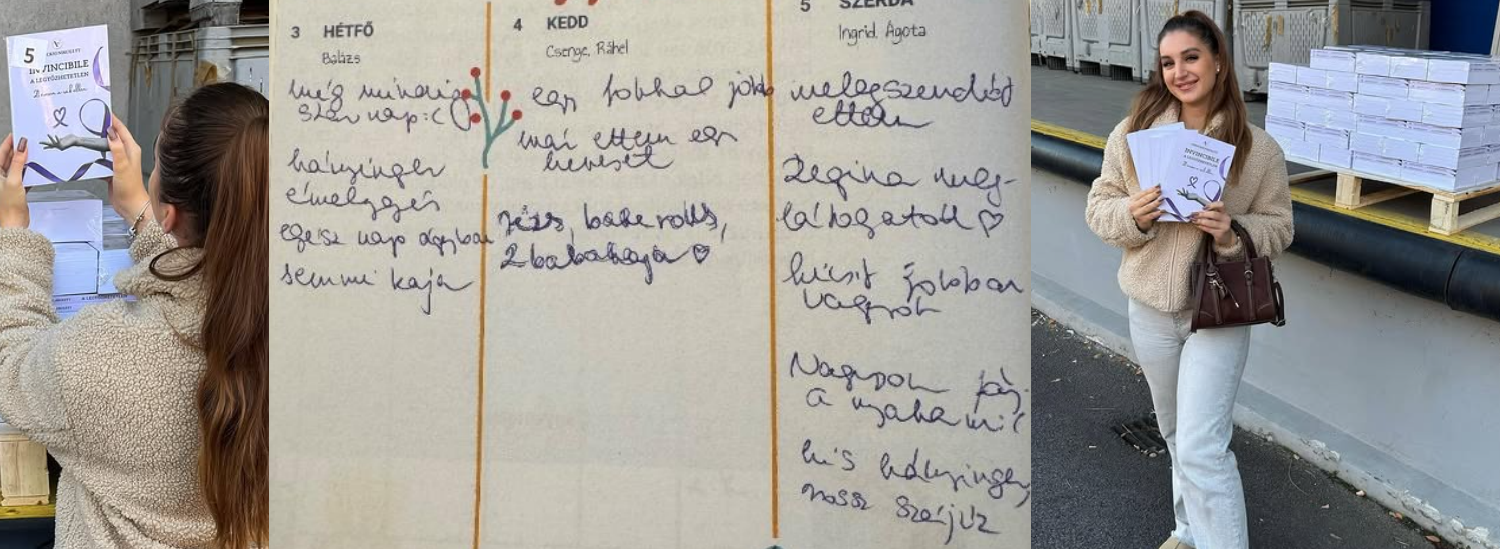 5
INVINCIBILE
A LEGYŐZHETETLEN
3 HÉTFŐ
Balázs
még mindig
szar nap :(
hányinger
émelygés
egész nap ágyban
semmi kaja
4 KEDD
Csenge, Ráhel
egy fokkal jobb
mai ettem egy
keveset
rizs, bake rolls,
2 babakaja ♡
5 SZERDA
Ingrid, Ágota
melegszendvicset
ettem
Regina meg-
látogatott ♡
kicsit jobban
vagyok
Nagyon fáj
a nyakam :(
kis hányinger,
rossz szájíz
INVINCIBILE
A LEGYŐZHETETLEN